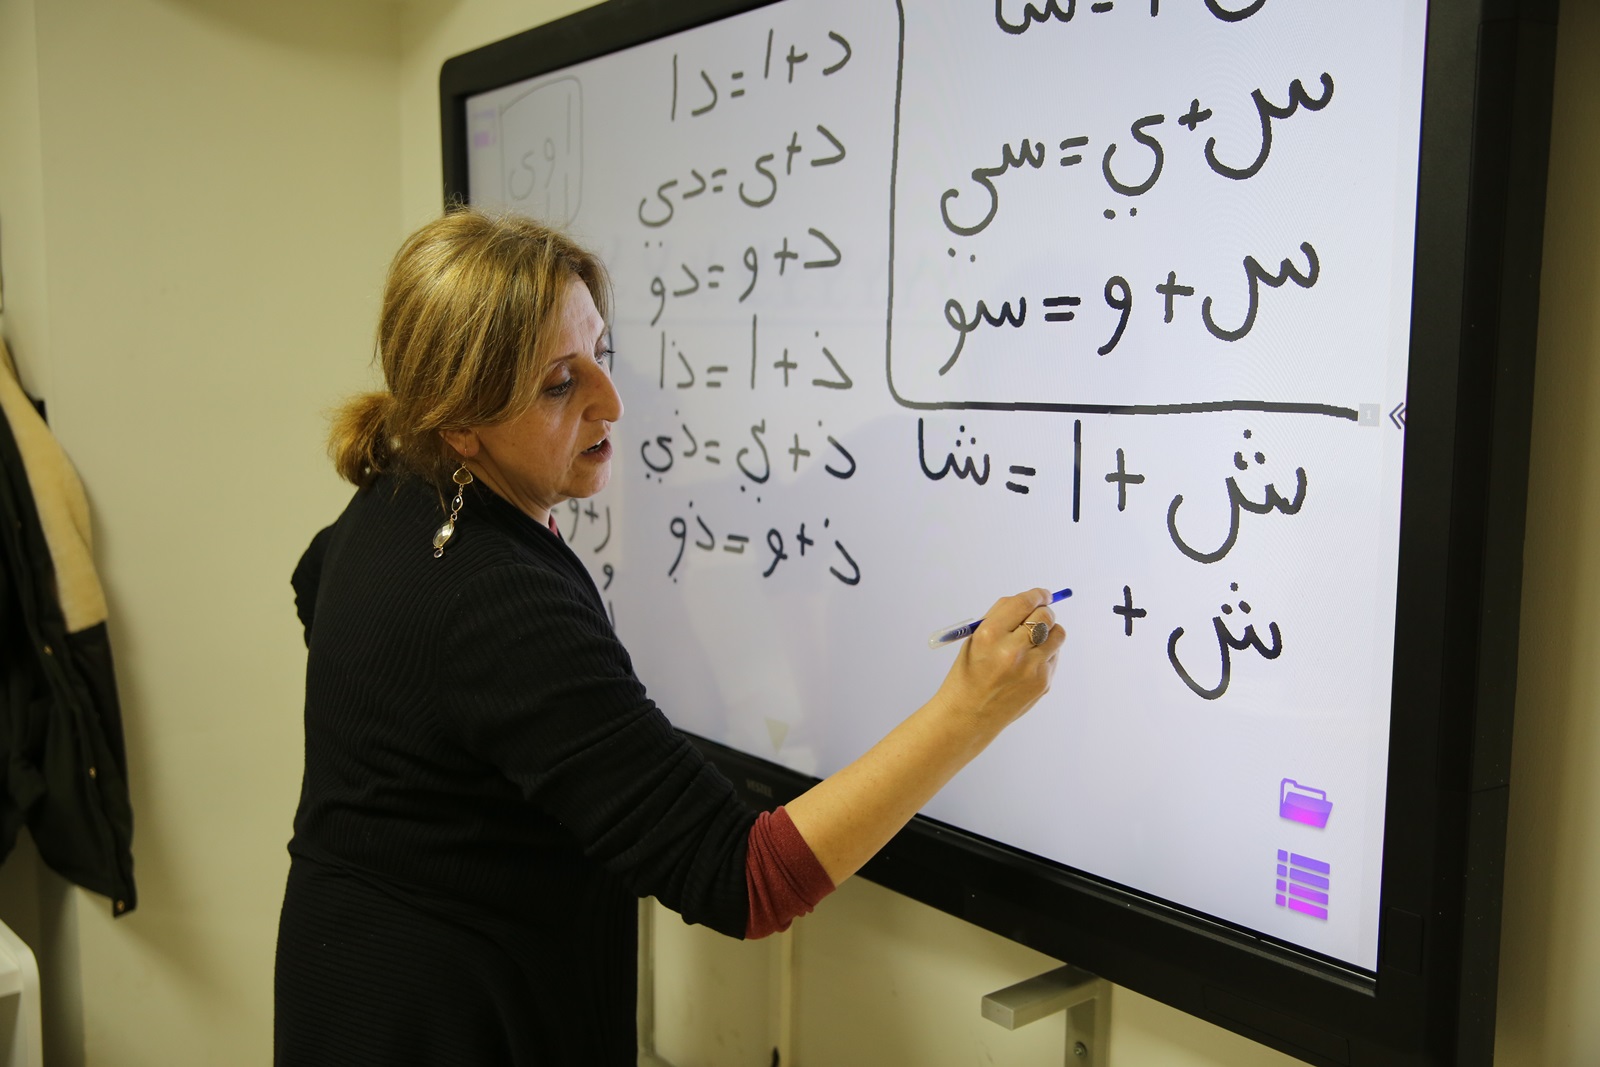 س+ي=سي
س+و=سو
ش+ا=شا
ش+
د+ا=دا
د+ي=دي
د+و=دو
ذ+ا=ذا
ذ+ي=ذي
ذ+و=ذو
ر+و
ا و ي